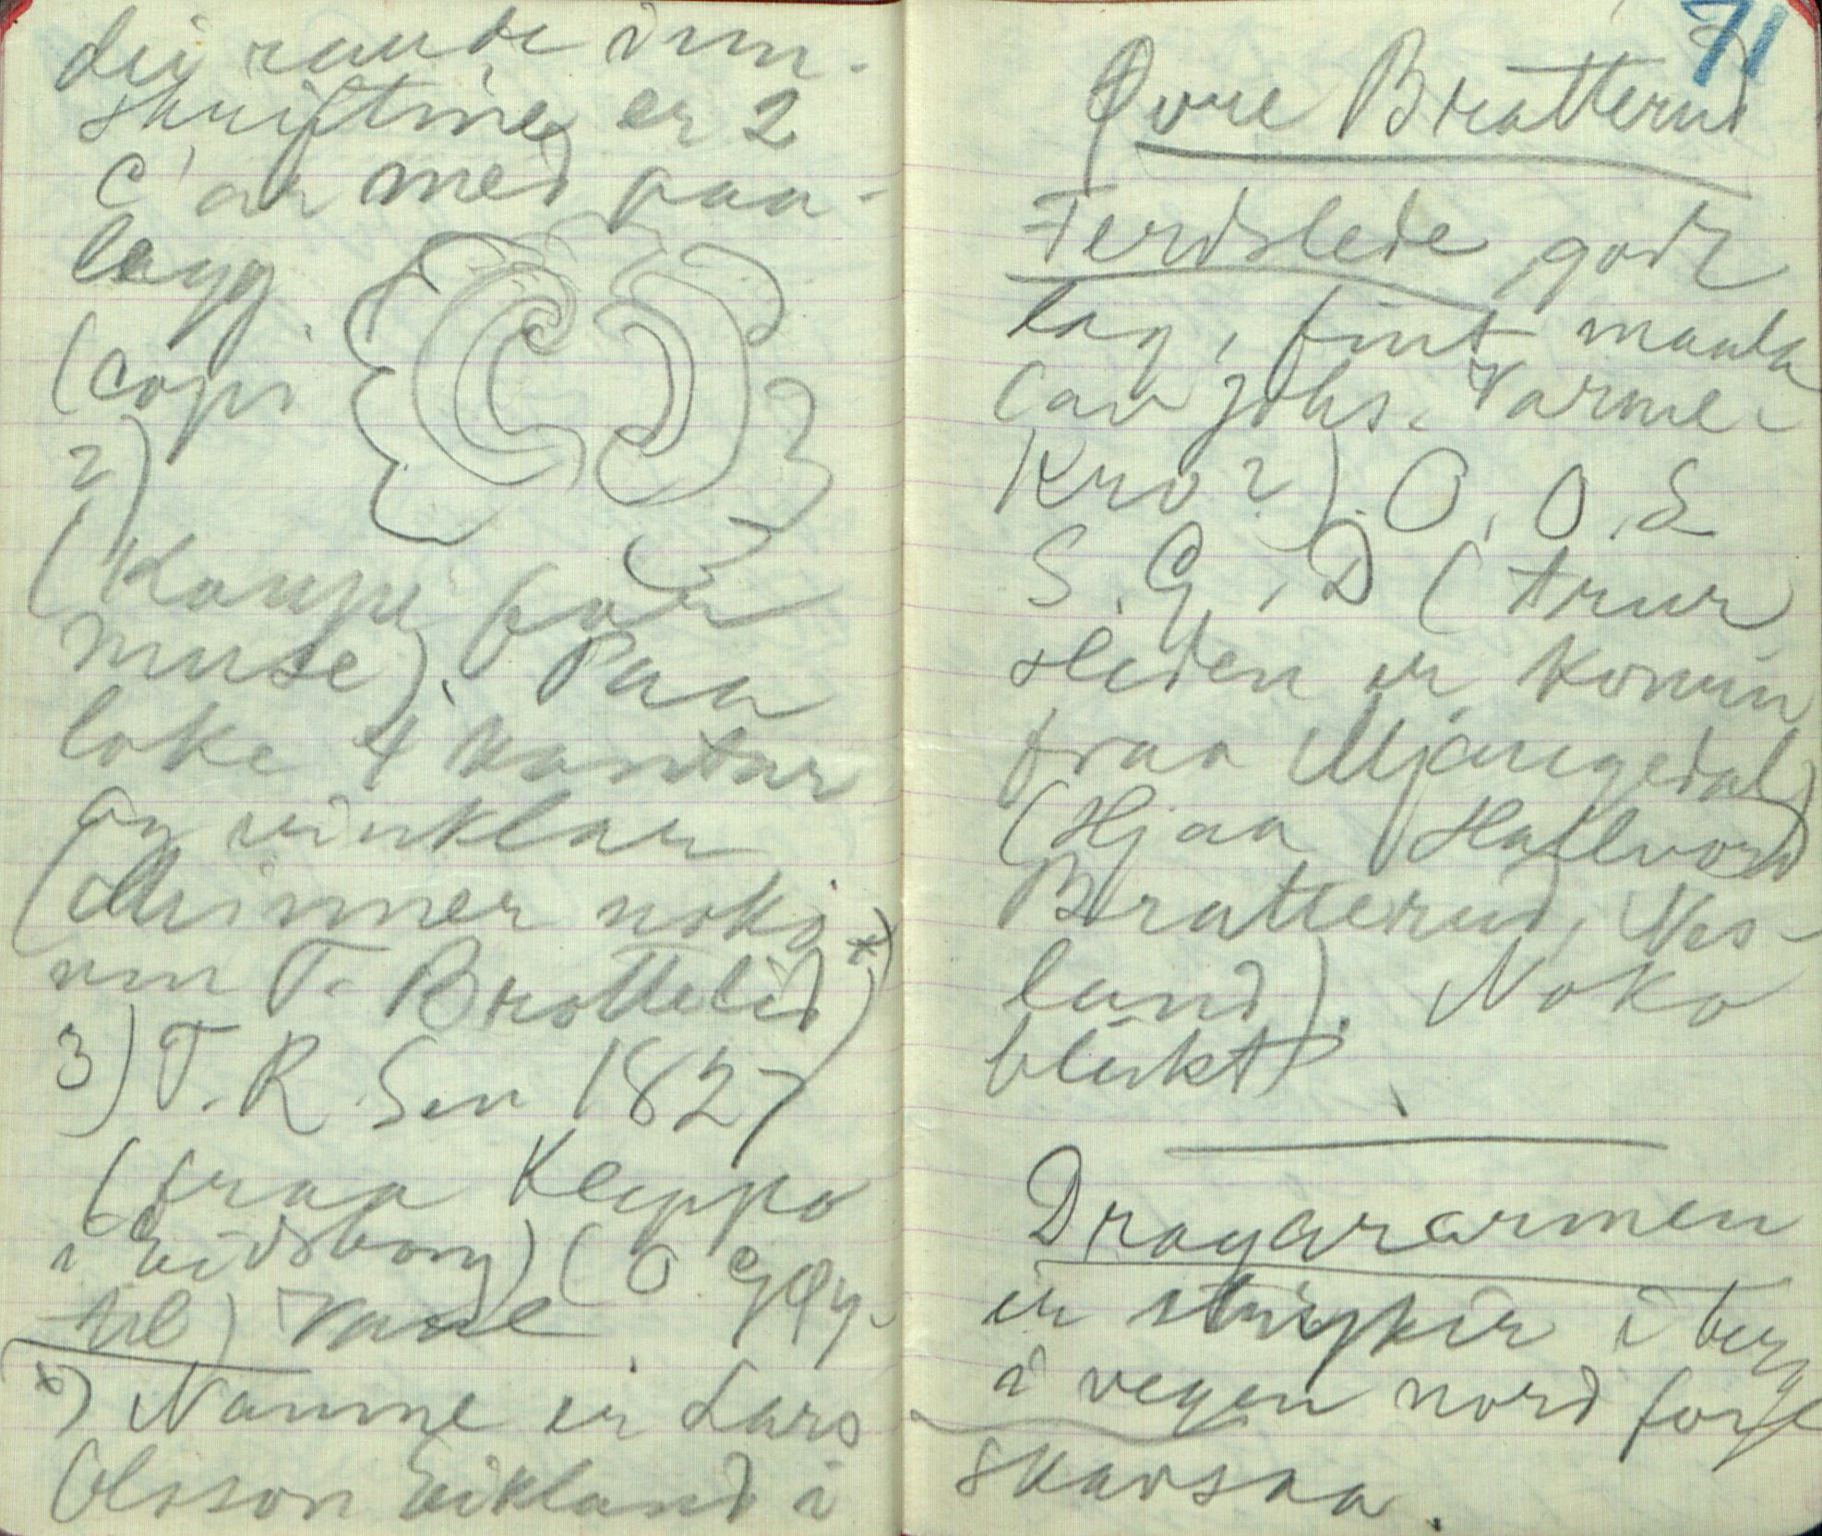 dei raude inn-
skriftine er 2
C'ar med paa-
legg.
(copi
2)
(Kaupe for
muse). Paa
loke 4 kantar
og vinklar
(Minner noko
um T. Brottelid) *)
3) T. R. Sen 1827
(fraa Kleppo
i Eidsborg) (O. Gøy-
til)
*) Namne er Lars
Olsson Eikland i
71
Øvre Bratterud
Ferdslede godt
lag, fint maala
(av Johs. Varme-
kro?). O. O. S
S. G. D (trur
sleden er komin
fraa Mjaugedal)
(Hjaa Hallvord
Bratterud, Ves-
land). Noko
bleikt.
Dragararmen
er i berg
i vegen nord for
Skavsaa.